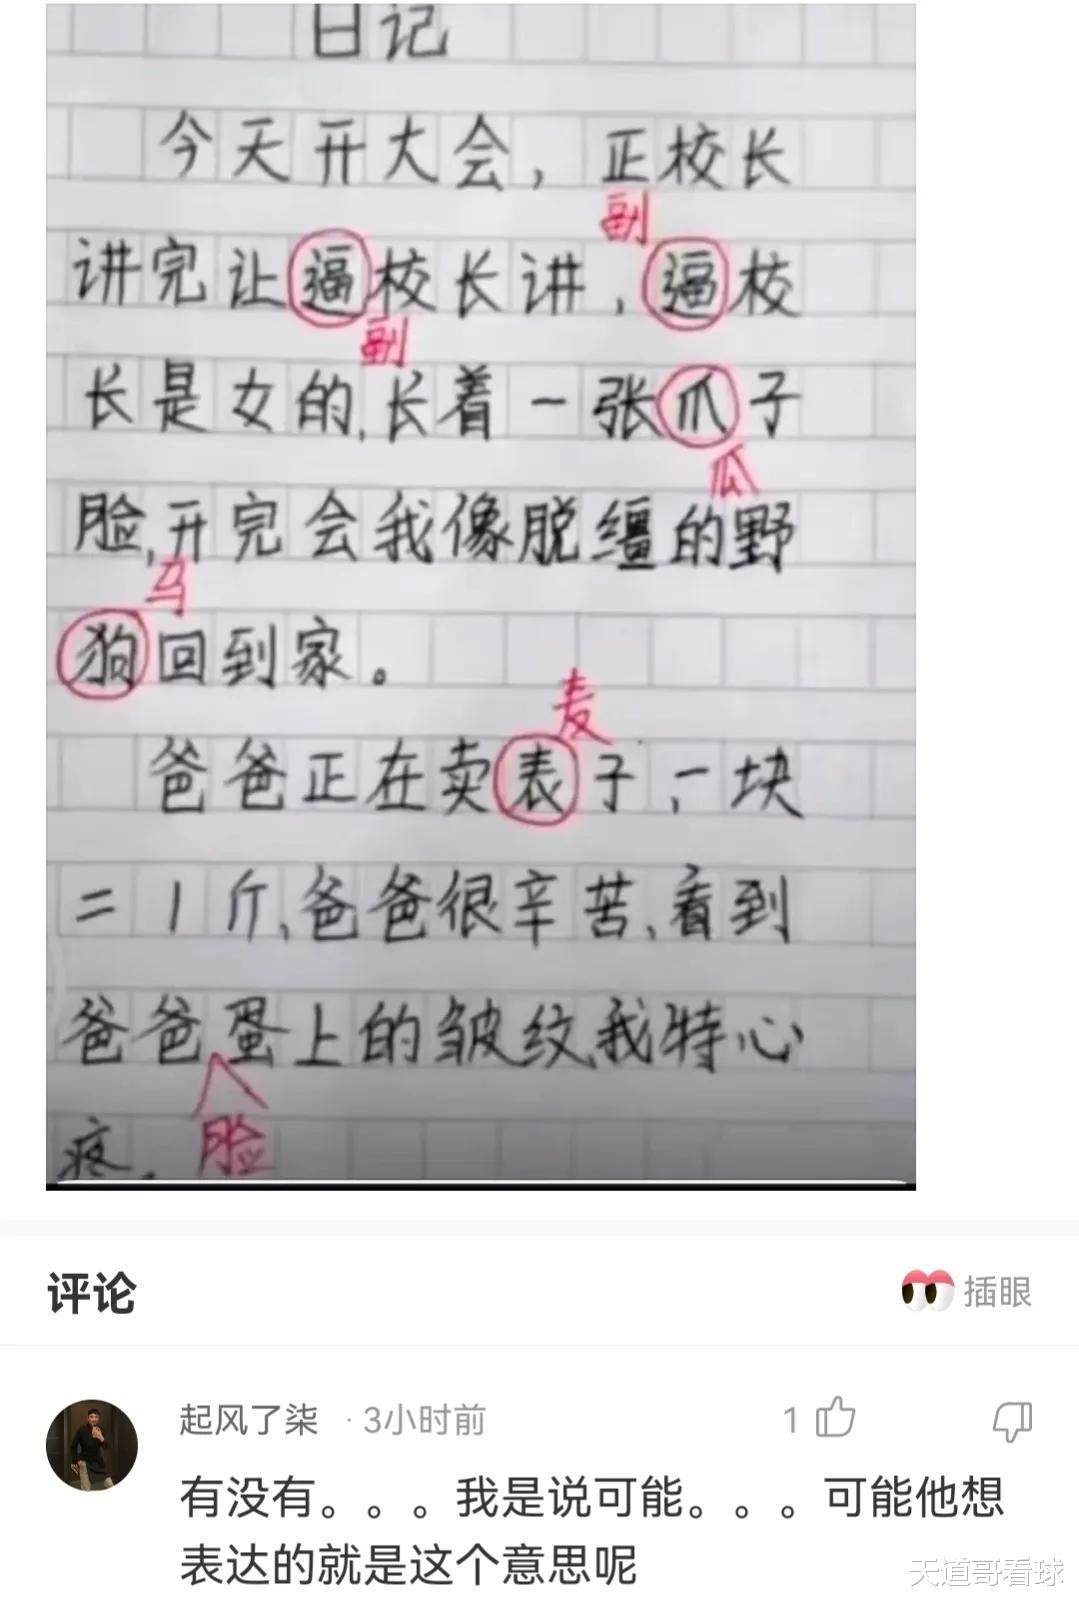 日记
今天开大会，正校长
副
讲完让逼校长讲，逼校
副
长是女的,长着一张爪子
瓜
脸,开完会我像脱缰的野
马
狗回到家。
麦
爸爸正在卖表子,一块
二1斤,爸爸很辛苦,看到
爸爸蛋上的皱纹我特心
脸
疼.
评论
插眼
起风了柒 ·3小时前
1
有没有。。。我是说可能。。。可能他想
表达的就是这个意思呢
天道哥看球